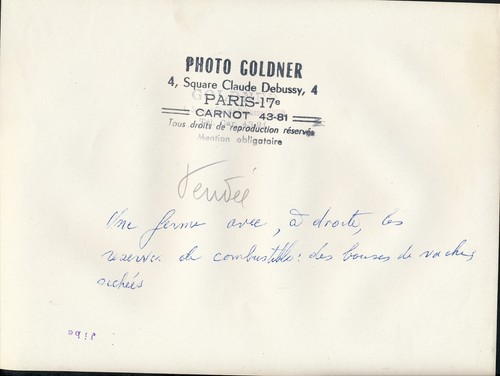 PHOTO GOLDNER
4, Square Claude Debussy, 4
PARIS-17e
CARNOT 43-81
Tous droits de reproduction réservés
Mention obligatoire
Vendée
Une ferme avec, à droite, les
reserves de combustible : des bouses de vaches
sechées